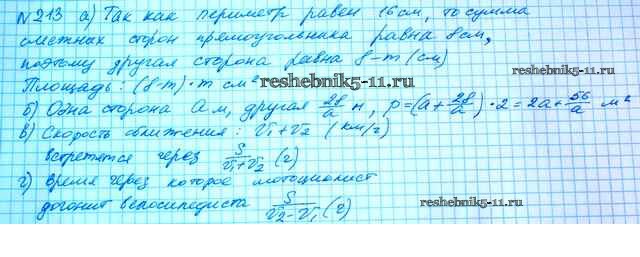 №213 а) Так как периметр равен 16 см, то сумма
смежных сторон прямоугольника равна 8 см,
поэтому другая сторона равна 8-m (см)
reshebnik5-11.ru
Площадь: (8-m)·m см²
reshebnik5-11.ru
б) Одна сторона а м, другая 28/a м, P=(a+28/a)·2=2a+56/a м²
в) Скорость сближения: v₁+v₂ (км/ч)
встретятся через S/(v₁+v₂) (ч)
г) время через которое мотоциклист
reshebnik5-11.ru
догонит велосипедиста S/(v₂-v₁) (ч)